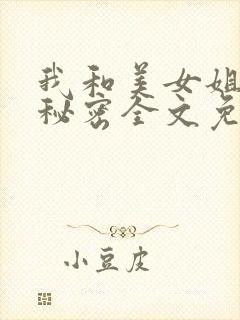 我和美女姐
秘密全文免
小豆皮